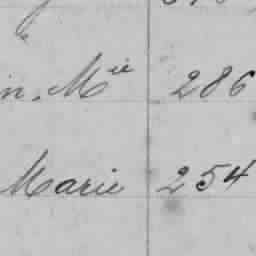 in. Mie 286
Marie 254